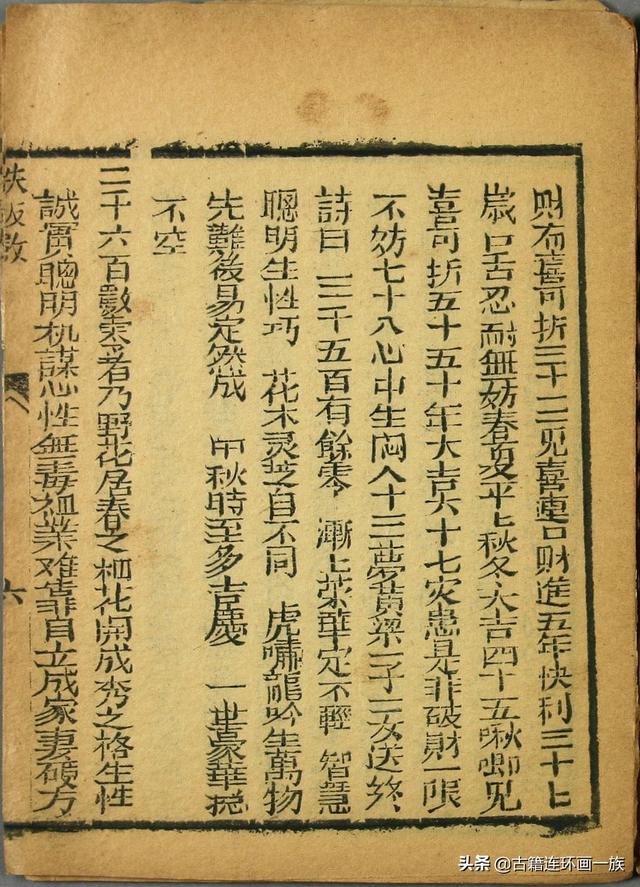 則布喜可折三十二見喜連口財進五年快利三十七
歲口舌忍耐無妨春夏平上秋冬大吉四十五啾唧見
喜可折五十五十年大吉六十七灾患是非破財一限
不妨七十八心中生悶八十三夢黃粱一子二女送終
詩曰 三千五百有餘零 漸上榮華定不輕 智慧
聰明生性巧 花木灵芝自不同 虎嘯龍吟生萬物
先難後易定然成 中秋時至多吉慶 一世豪華総
不空
二千六百數零者乃野花居春之 花開成秀之格生性
誠實聰明机謀心性無毒祖業难靠自立成家妻硬方
铁板数
六
头条 @古籍连环画一族